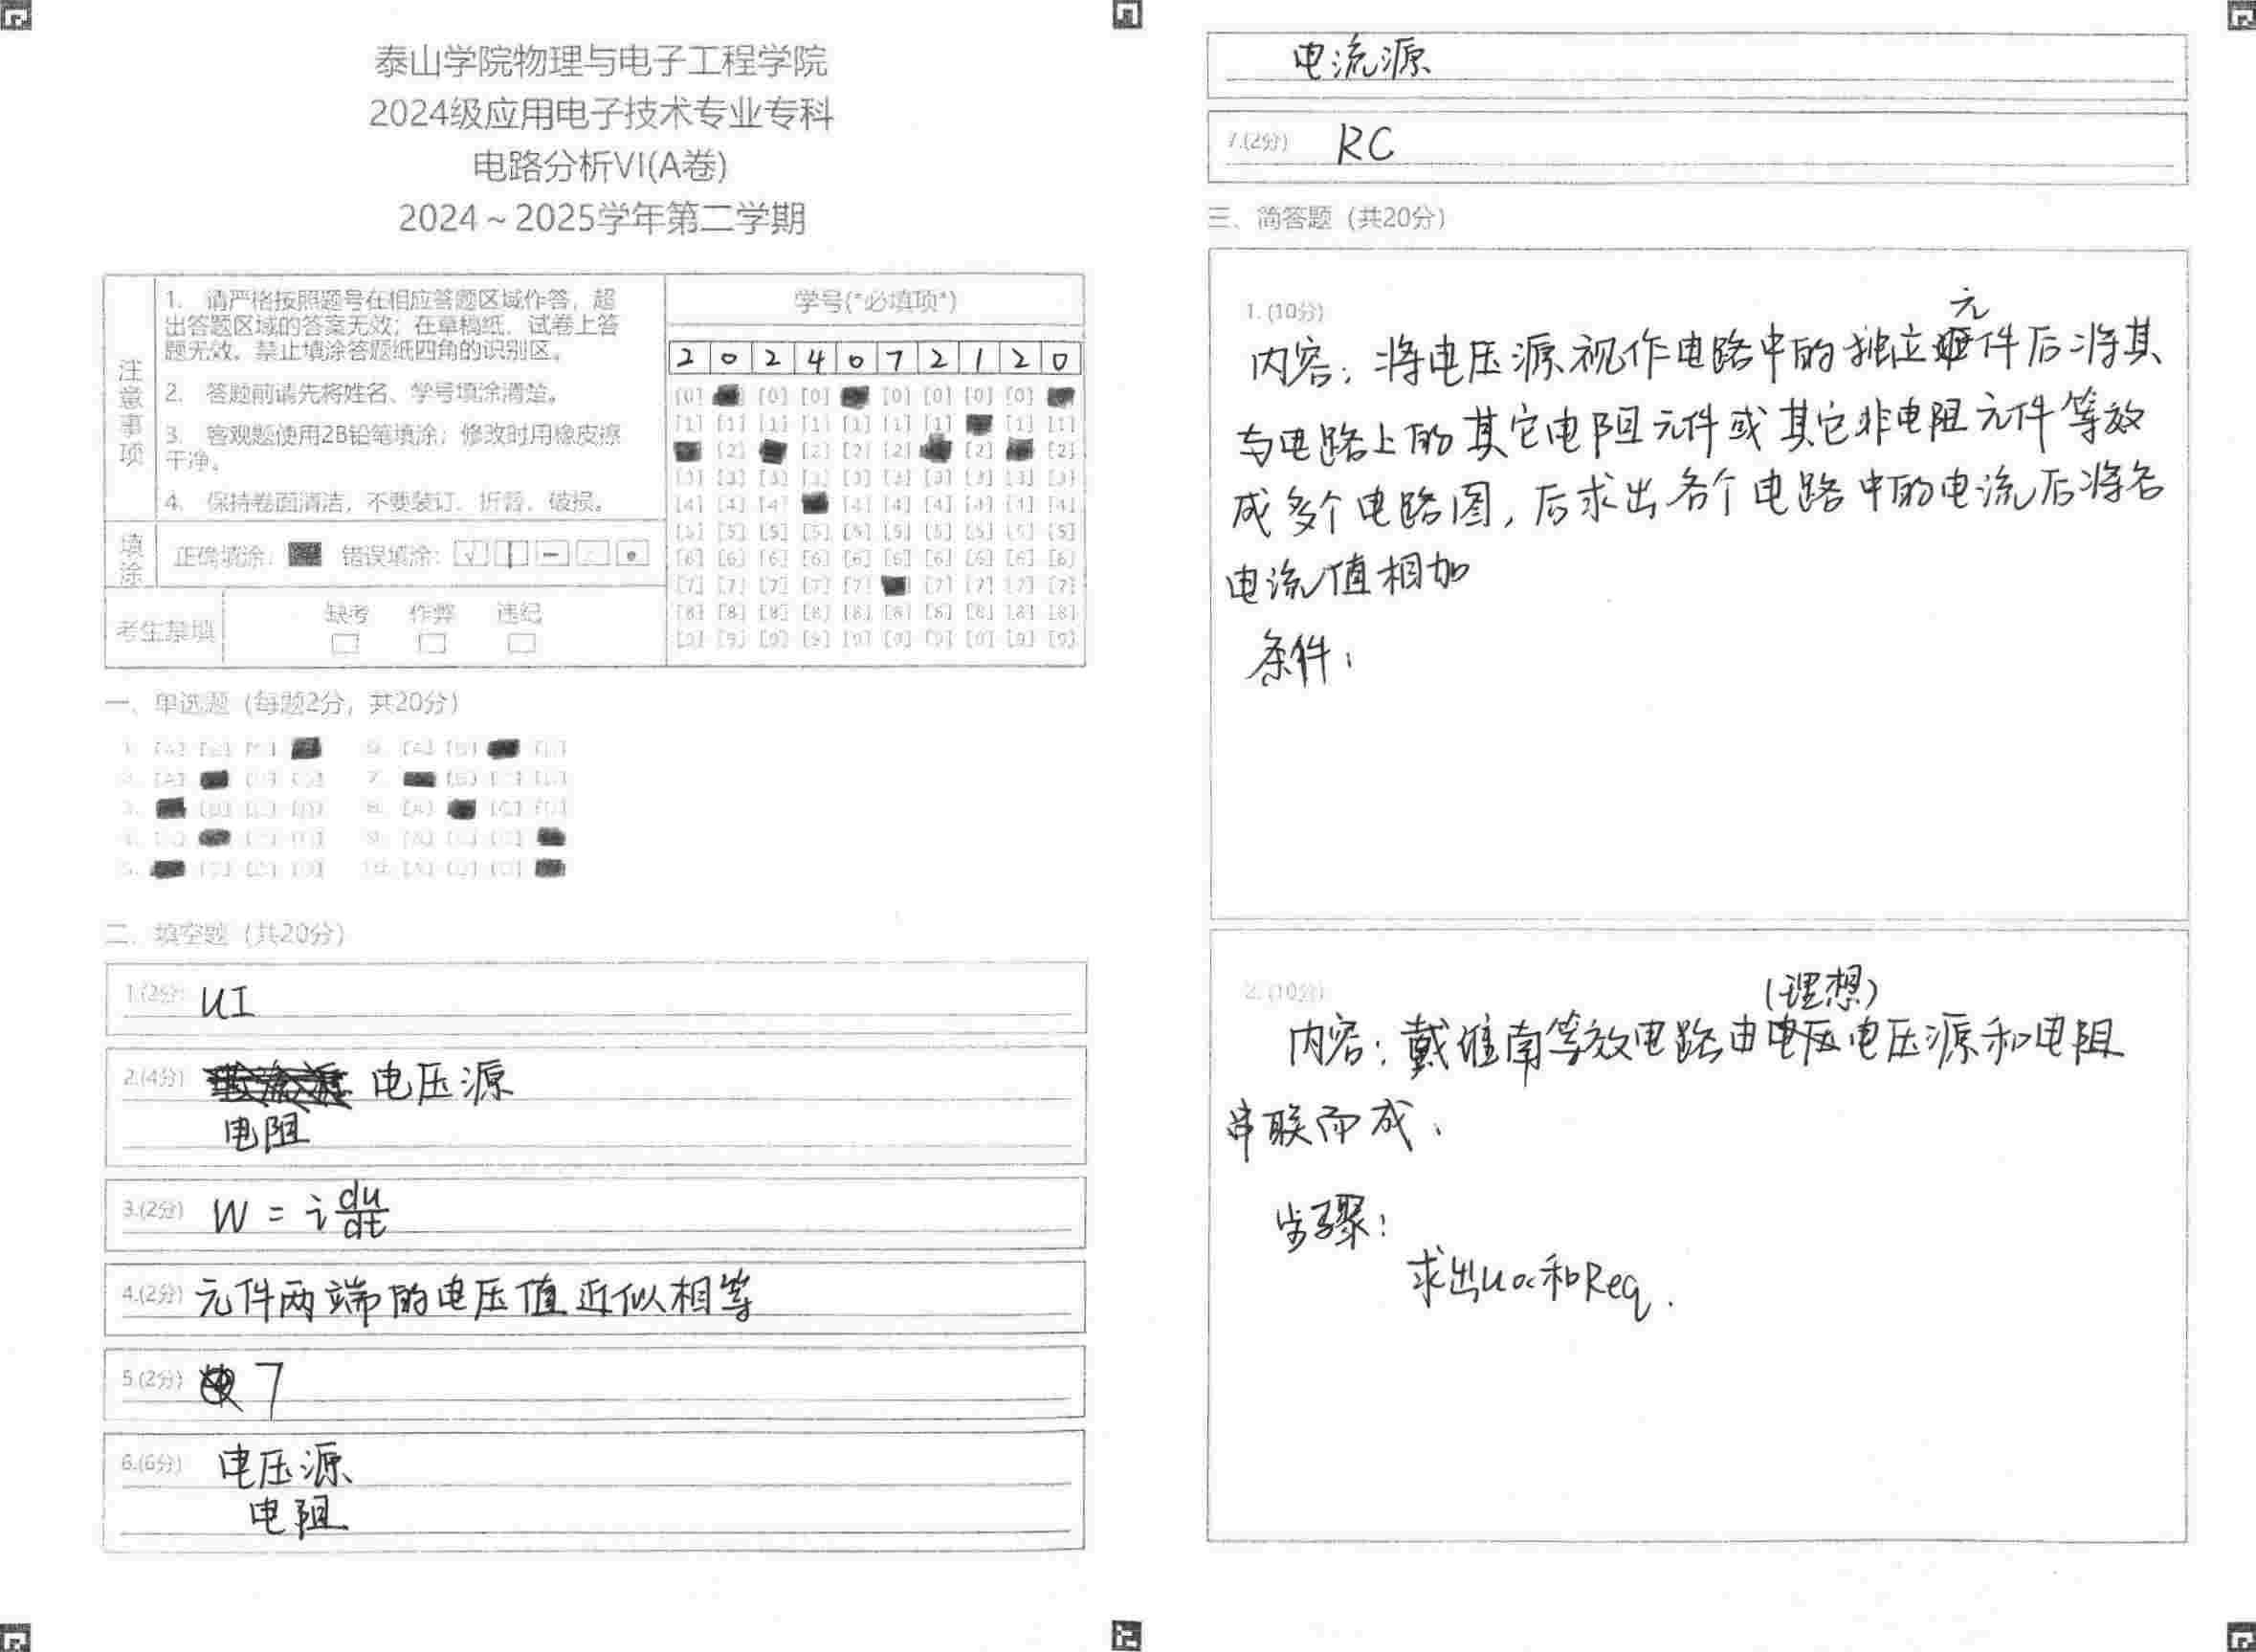 泰山学院物理与电子工程学院
2024级应用电子技术专业专科
电路分析VI(A卷)
2024～2025学年第二学期
注意事项
1. 请严格按照题号在相应答题区域作答，超
出答题区域的答案无效；在草稿纸、试卷上答
题无效。禁止填涂答题纸四角的识别区。
2. 答题前请先将姓名、学号填涂清楚。
3. 客观题使用2B铅笔填涂；修改时用橡皮擦
干净。
4. 保持卷面清洁，不要装订、折叠、破损。
填涂
正确填涂： 错误填涂：
考生禁填
缺考 作弊 违纪
学号(*必填项*)
2 0 2 4 0 7 2 1 2 0
[0] [0] [0] [0] [0] [0] [0]
[1] [1] [1] [1] [1] [1] [1] [1] [1]
[2] [2] [2] [2] [2] [2]
[3] [3] [3] [3] [3] [3] [3] [3] [3] [3]
[4] [4] [4] [4] [4] [4] [4] [4] [4]
[5] [5] [5] [5] [5] [5] [5] [5] [5] [5]
[6] [6] [6] [6] [6] [6] [6] [6] [6] [6]
[7] [7] [7] [7] [7] [7] [7] [7] [7]
[8] [8] [8] [8] [8] [8] [8] [8] [8] [8]
[9] [9] [9] [9] [9] [9] [9] [9] [9] [9]
一、单选题（每题2分，共20分）
二、填空题（共20分）
1.(2分) UI
2.(4分) 电压源
电阻
3.(2分) W = i du/dt
4.(2分) 元件两端的电压值近似相等
5.(2分) 7
6.(6分) 电压源
电阻
电流源
7.(2分) RC
三、简答题（共20分）
1.(10分)
内容：将电压源视作电路中的独立元件后将其
与电路上的其它电阻元件或其它非电阻元件等效
成多个电路图，后求出各个电路中的电流后将各
电流值相加
条件：
2.(10分)
内容：戴维南等效电路由电压(理想)电压源和电阻
串联而成、
步骤：
求出uoc和Req.